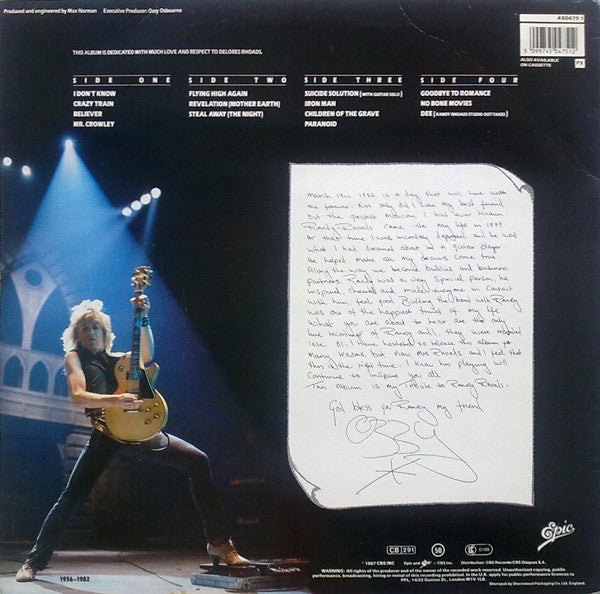 Produced and engineered by Max Norman Executive Producer: Ozzy Osbourne
450475 1
5 099745 047512
ALSO AVAILABLE
ON CASSETTE
THIS ALBUM IS DEDICATED WITH MUCH LOVE AND RESPECT TO DELORES RHOADS.
SIDE ONE
I DON'T KNOW
CRAZY TRAIN
BELIEVER
MR. CROWLEY
SIDE TWO
FLYING HIGH AGAIN
REVELATION (MOTHER EARTH)
STEAL AWAY (THE NIGHT)
SIDE THREE
SUICIDE SOLUTION (WITH GUITAR SOLO)
IRON MAN
CHILDREN OF THE GRAVE
PARANOID
SIDE FOUR
GOODBYE TO ROMANCE
NO BONE MOVIES
DEE (RANDY RHOADS STUDIO OUT-TAKES)
March 19th 1982 is a day that will live with
me forever. Not only did I lose my best friend
but the greatest musician I had ever known
Randy Rhoads came into my life in 1979
At that time I was incredibly depressed and he was
what I had dreamed about in a guitar player
He helped make all my dreams come true
Along the way we became buddies and business
partners. Randy was a very special person, he
inspired, cheered and made everyone in contact
with him feel good. Building the band with Randy
was one of the happiest times of my life
What you are about to hear are the only
live recordings of Randy and I, they were recorded
late 81. I have hesitated to release this album for
many reasons but now Mrs Rhoads and I feel that
this is the right time. I know his playing will
continue to inspire you all
This album is my Tribute to Randy Rhoads.
God bless ya Randy my friend
Ozzy
1956-1982
CB 291
Epic
© 1987 CBS INC Epic and CBS Inc. Distributor: CBS Records/CBS Disques S.A.
WARNING: All rights of the producer and of the owner of the recorded work reserved. Unauthorised copying, public
performance, broadcasting, hiring or rental of this recording prohibited. In the U.K. apply for public performance licences to
PPL, 14/22 Ganton St., London W1V 1LB.
Shorepak by Shorewood Packaging Co. Ltd. England.